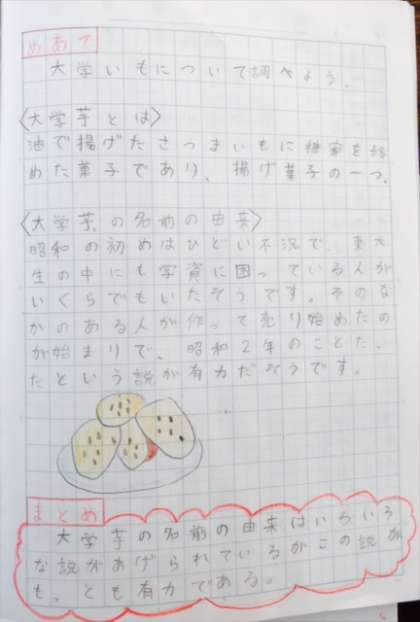 めあて
大学いもについて調べよう。
〈大学芋とは〉
油で揚げたさつまいもに糖蜜を絡
めた菓子であり、揚げ菓子の一つ。
〈大学芋の名前の由来〉
昭和の初めはひどい不況で、東大
生の中にも学資に困っている人が
いくらでもいたそうです。そのな
かのある人が作って売り始めたの
が始まりで、昭和2年のことだ。
たという説が有力だそうです。
まとめ
大学芋の名前の由来はいろいろ
な説があげられているがこの説が
も、とも有力である。